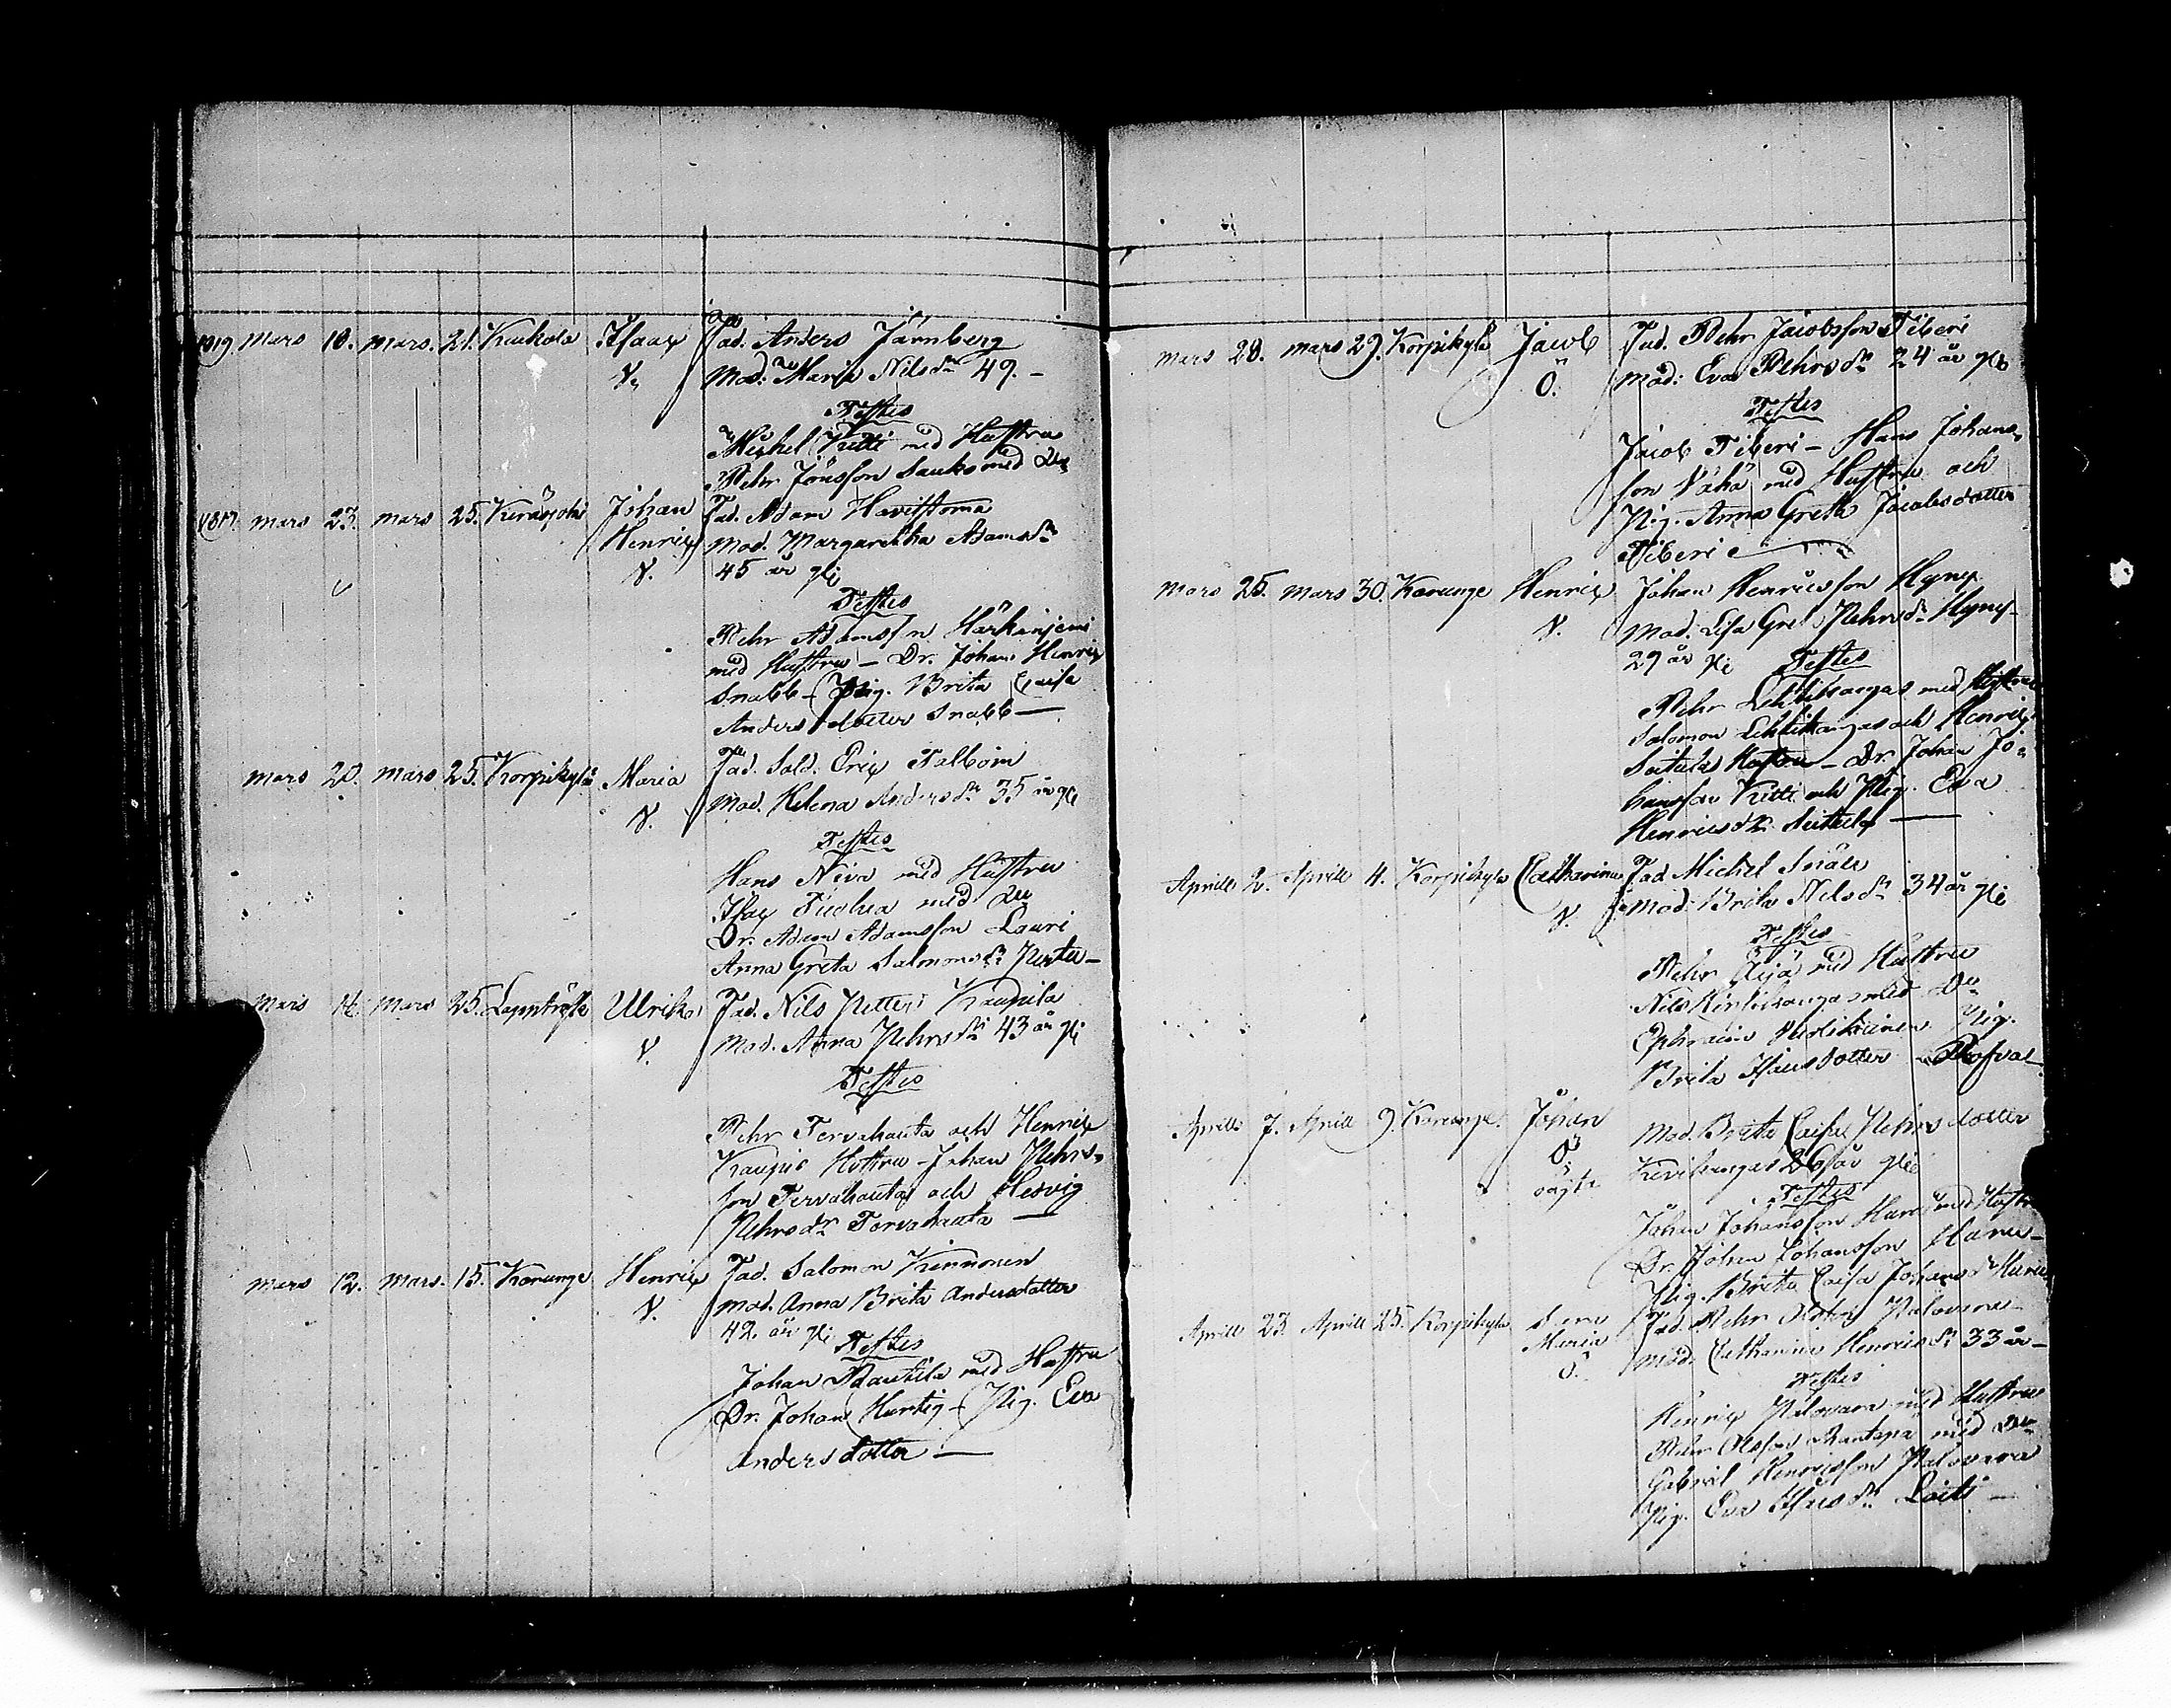 1819. Mars 18. Mars. 21. Kukola Isaac Fad. Anders Järnberg
V. Mod: Maria Nilsdr 49. –
Testes
Michel Kitti med Hustru
Pehr Jönsson Sauko med Do
Mars 23. Mars 25. Johan Fad. Adam
Henric Mod. Margaretha Adamsdr
V. 45 år gl.
Testes
Pehr Adamsson Härkinjemi
med Hustru – Dr. Johan Henric
Snabb – Pig. Brita Caisa
Anders dotter Snabb —
Mars 20. Mars 25. Korpikylä Maria Fad. Sold. Eric
V. Mod. Helena Andersdr 35 år gl
Testes
Hans Niva med Hustru
Isac med Do
Dr. Adam Adamsson Lauri
Anna Greta Salomonsdr –
Mars 14. Mars 25. Lappträsk Ulrika Fad. Nils Petter Kaupila
V. Mod. Anna Pehrsdr 43 år gl
Testes
Pehr Tervahauta och Henric
Hustru – Johan Pehrs-
son Tervahauta och Hedvig
Pehrsdr Tervahauta —
Mars 12. Mars. 15. Karunge Henric Fad. Salomon Kinnonen
V. Mod. Anna Brita Andersdotter
42 år gl
Testes
Johan Rautila med Hustru
Dr. Johan Hurtig – Pig. Eva
Andersdotter —
Mars 28. Mars 29. Korpikylä Jacob Fad. Pehr Jacobsson Tiberi
Ö. Mod: Eva Pehrsdr 24 år gl
Testes
Jacob Tiberi – Hans Johans-
son Vähä med Hustru och
Pig. Anna Greta Jacobsdotter
Tiberi —
Mars 25. Mars 30. Karunge Henric Johan Henricsson Hyny
V. Mod. Lisa Gret. Pehrsdr Hyny –
29 år gl Testes
Pehr Lehtikangas med Hustru
Salomon Lehtikangas och Henric
Hustru – Dr. Johan Jo-
hansson Kitti och Pig. Eva
Henricsdr —
Aprill 2. Aprill 4. Korpikylä Catharina Fad Michel
V. Mod: Brita Nilsdr 34 år gl
Testes
Pehr Äijä med Hustru
Nils med Do
Ephraim Pig.
Brita Isacsdotter
Aprill 7. Aprill 9. Karunge. Johan Mod. Brita Caisa Pehrs dotter
Ö 26 år gl
oägta Testes
Johan Johansson med Hustru
Dr. Johan Johansson –
Pig. Brita Caisa Johansdr
Aprill 23. Aprill 25. Korpikylä Fad. Pehr Palovara
Maria Mod. Catharina Henricsdr 33 år –
Ö. Testes
Henric Palovara med Hustru
Pehr Olsson Rantapa med Do
Gabriel Henricsson Palovara
Pig. Eva Isacsdr Laiti —